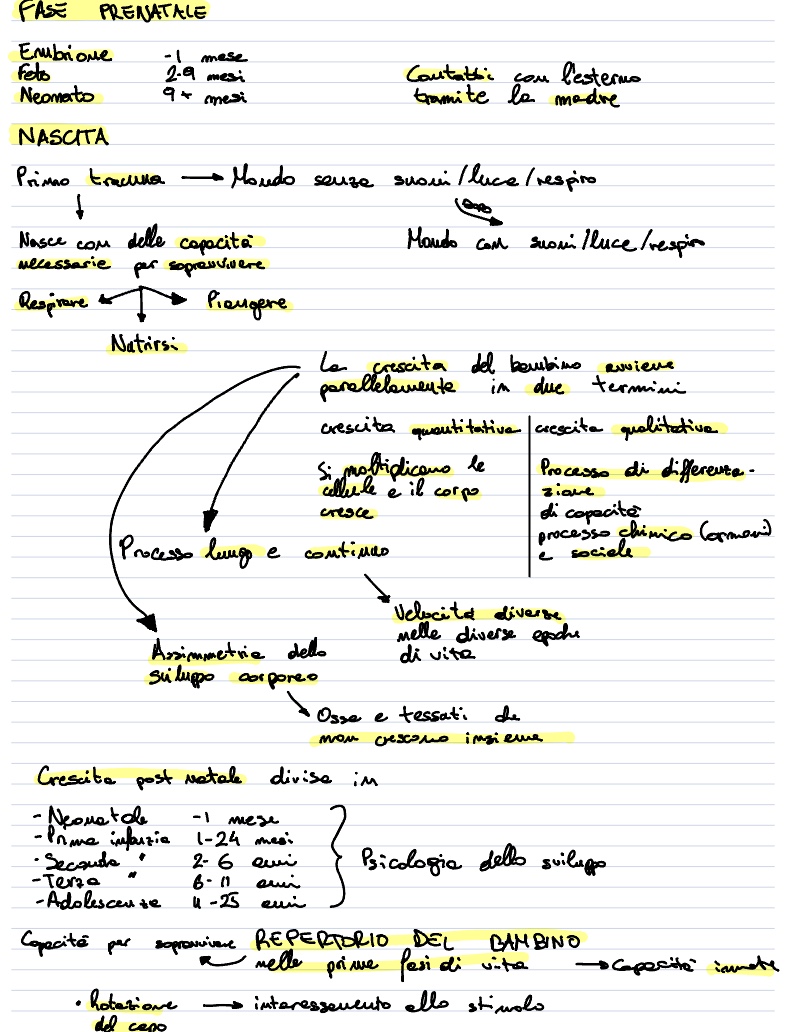 FASE PRENATALE
Embrione -1 mese
Feto 2-9 mesi
Neonato 9+ mesi
Contatti con l'esterno
tramite la madre
NASCITA
Primo trauma → Mondo senza suoni/luce/respiro
dopo
Nasce con delle capacità
necessarie per sopravvivere
Mondo con suoni/luce/respiro
Respirare Piangere
Nutrirsi
La crescita del bambino avviene
parallelamente in due termini
crescita quantitativa
Si moltiplicano le
cellule e il corpo
cresce
crescita qualitativa
Processo di differenza-
zione
di capacità
processo chimico (ormoni)
e sociale
Processo lungo e continuo
Velocità diverse
nelle diverse epoche
di vita
Assimmetria dello
sviluppo corporeo
Ossa e tessuti che
non crescono insieme
Crescita post natale divisa in
- Neonatale -1 mese
- Prima infanzia 1-24 mesi
- Seconda " 2-6 anni
- Terza " 6-11 anni
- Adolescenza 11-25 anni
Psicologia dello sviluppo
Capacità per sopravvivere REPERTORIO DEL BAMBINO
nelle prime fasi di vita → Capacità innate
• Rotazione → interessamento allo stimolo
del capo